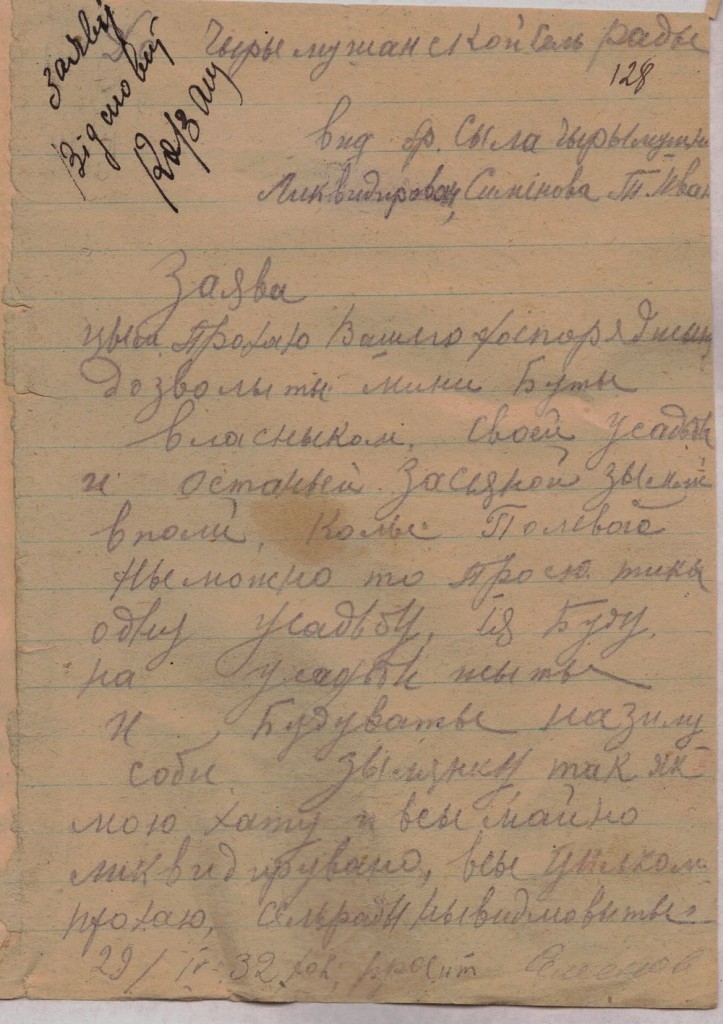 заяву
Відмовий
Чырымушанской Сель рады
128
вид гр. Сыла Чырымушн
Ликвидирован, Симінова Т. Иван
Заява
Прохаю Вашего хоспоряджын
дозволыты мини Буты
власныком, своей усадьби
и останьей засияной зымли
в поли, Колы Полевой
Ны можно то просю тикы
одну усадьбу, ія Буду,
на усадьби жыты
и Будуваты назиму
соби зымлянку так як
мою хату и всы майно
ликвидирувано, всы цилком
прохаю, Сельраду ны видмовыты
29/IV 32 рок, просит Семенов